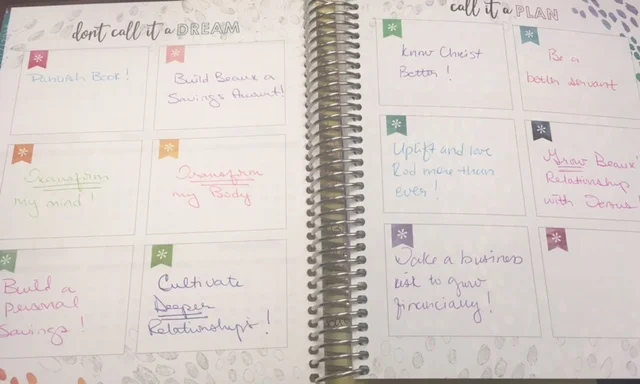 dont call it a DREAM
Publish Book!
Build Beaux a
Savings Account!
Transform
my mind!
Transform
my Body
Build a
personal
Savings!
Cultivate
Deeper
Relationships!
call it a PLAN
Know Christ
Better!
Be a
better servant
Uplift and love
Rod more than
ever!
Grow Beaux
Relationship
with Jesus!
Take a business
risk to grow
financially!